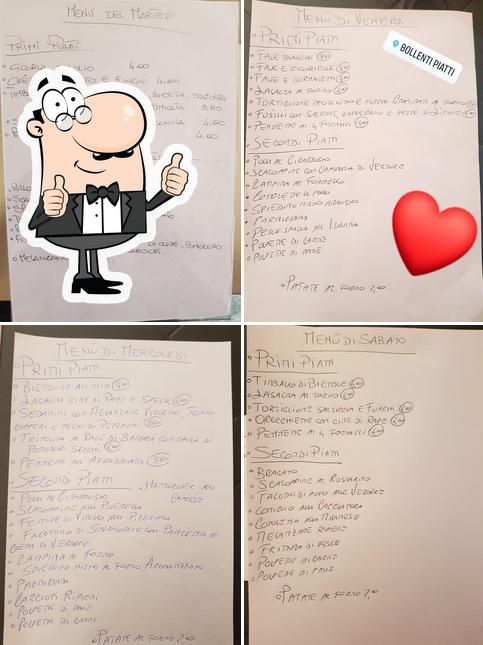 MENÙ DEL MARTEDÌ
PRIMI PIATTI
CICORIA OLIO 4.00
E FUNGHI 4.00
3,80
4.00
MENÙ DI VENERDÌ
BOLLENTI PIATTI
PRIMI PIATTI
FAVE BIANCHE
FAVE E CICORIELLE
FAVE E CORNALETTI
LASAGNA AL FORNO
TORTIGLIONE PROSCIUTTO E FUNGHI GRATINATI AL FORNO
FUSILLI CON SALMONE, ZAFFERANO E PESTO DI
PENNETTE AI 4 FORMAGGI
SECONDI PIATTI
POLLI AL GIRARROSTO
SCALOPPINE CON CAPONATA DI VERDURE
ZAMPINA AL FORNELLO
COTOLETTE DI POLLO
SPIEDINO MISTO ARROSTO
PARMIGIANA
PESCE SPADA ALL'ISOLANA
POLPETTE DI CARNE
POLPETTE DI PANE
PATATE AL FORNO 2,00
MENÙ DI MERCOLEDÌ
PRIMI PIATTI
BIETOLINA ALL'OLIO 4.00
LASAGNA CIME DI RAPE E SPECK
SEDANINI CON MELANZANE VIOLETTE, TONNO,
CAPPERI E PESTO DI PEPERONI
TRIPOLINA AL RAGÙ DI BACCALÀ CON GRANELLA DI
POMODORI SECCHI
PENNETTE ALL'ARRABBIATA 3,80
SECONDI PIATTI
HAMBURGER ALLA
POLLI AL GIRARROSTO
SCALOPPINE ALLA POVERELLA
FETTINE DI VITELLO ALLA PIZZAIOLA
FAGOTTINO DI SOVRACOSCE CON PANCETTA E
CREMA DI VERDURE
ZAMPINA AL FORNO
SPIEDINO MISTO AL FORNO AROMATIZZATO
PARMIGIANA
CARCIOFI RIPIENI
POLPETTE DI PANE
POLPETTE DI CARNE
PATATE AL FORNO 2,00
MENÙ DI SABATO
PRIMI PIATTI
TIMBALLO DI BIETOLE
LASAGNA AL FORNO
TORTIGLIONE SALSICCIA E FUNGHI
ORECCHIETTE CON CIME DI RAPE
PENNETTE AI 4 FORMAGGI
SECONDI PIATTI
BRASATO
SCALOPPINE AL ROSMARINO
FAGOTTO DI POLLO ALLE VERDURE
CONIGLIO ALLA CACCIATORA
COTOLETTA ALLA MILANESE
MELANZANE RIPIENE
FRITTURA DI PESCE
POLPETTE DI CARNE
POLPETTE DI PANE
PATATE AL FORNO 2,00